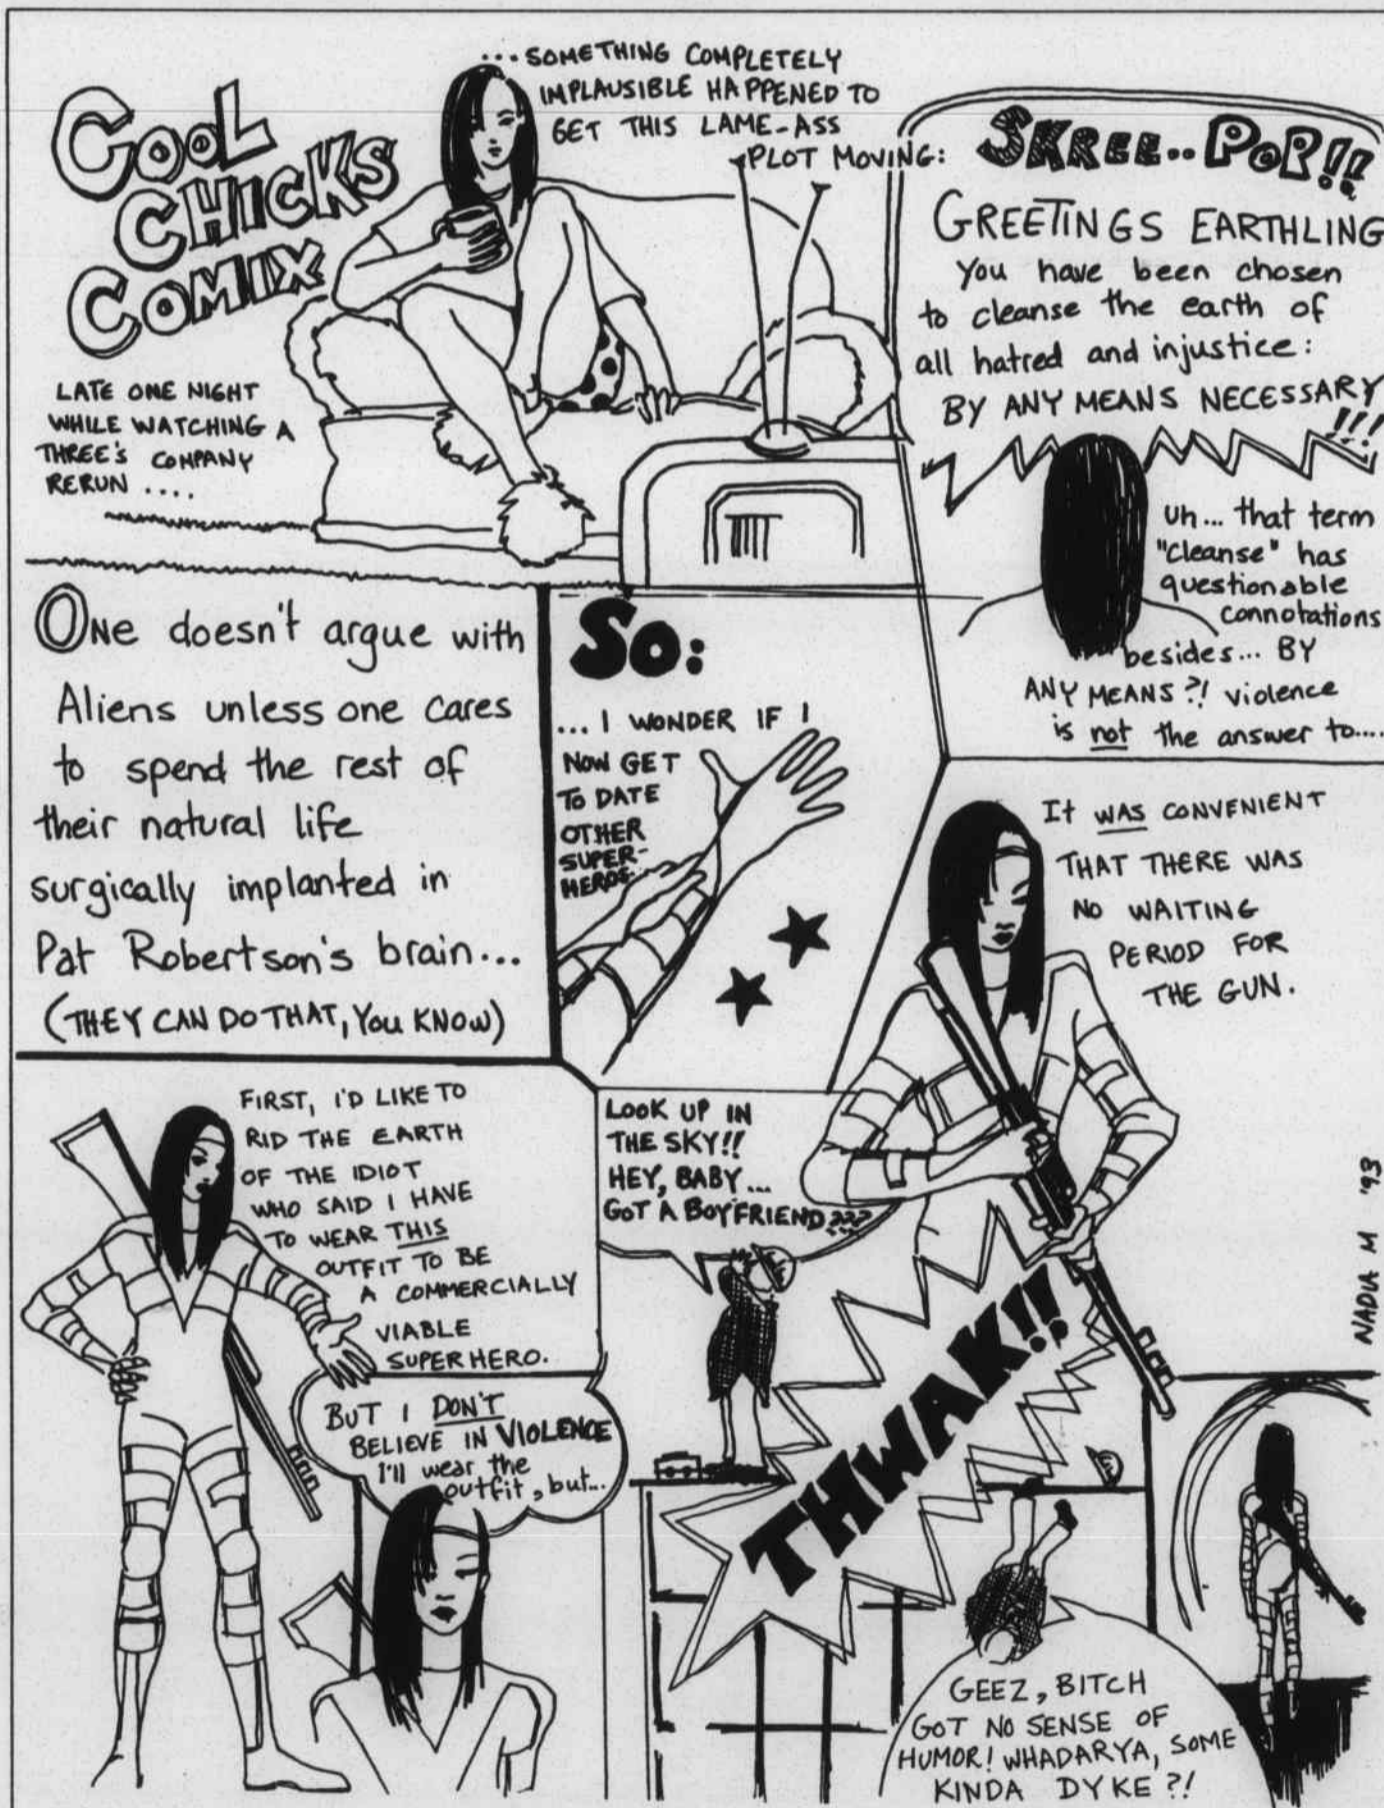 COOL
CHICKS
COMIX
LATE ONE NIGHT
WHILE WATCHING A
THREE'S COMPANY
RERUN ....
...SOMETHING COMPLETELY
IMPLAUSIBLE HAPPENED TO
GET THIS LAME-ASS
PLOT MOVING:
SKREE..POP!!
GREETINGS EARTHLING
You have been chosen
to cleanse the earth of
all hatred and injustice:
BY ANY MEANS NECESSARY
!!!
uh... that term
"Cleanse" has
questionable
connotations
besides... BY
ANY MEANS?! violence
is not the answer to....
ONE doesn't argue with
Aliens unless one cares
to spend the rest of
their natural life
surgically implanted in
Pat Robertson's brain...
(THEY CAN DO THAT, You KNOW)
So:
... I WONDER IF I
NOW GET
TO DATE
OTHER
SUPER-
HEROE...
It WAS CONVENIENT
THAT THERE WAS
NO WAITING
PERIOD FOR
THE GUN.
FIRST, I'D LIKE TO
RID THE EARTH
OF THE IDIOT
WHO SAID I HAVE
TO WEAR THIS
OUTFIT TO BE
A COMMERCIALLY
VIABLE
SUPERHERO.
BUT I DON'T
BELIEVE IN VIOLENCE
I'll wear the
outfit, but...
LOOK UP IN
THE SKY!!
HEY, BABY...
GOT A BOYFRIEND???
THWAK!!
GEEZ, BITCH
GOT NO SENSE OF
HUMOR! WHADARYA, SOME
KINDA DYKE?!
NADIA M '93